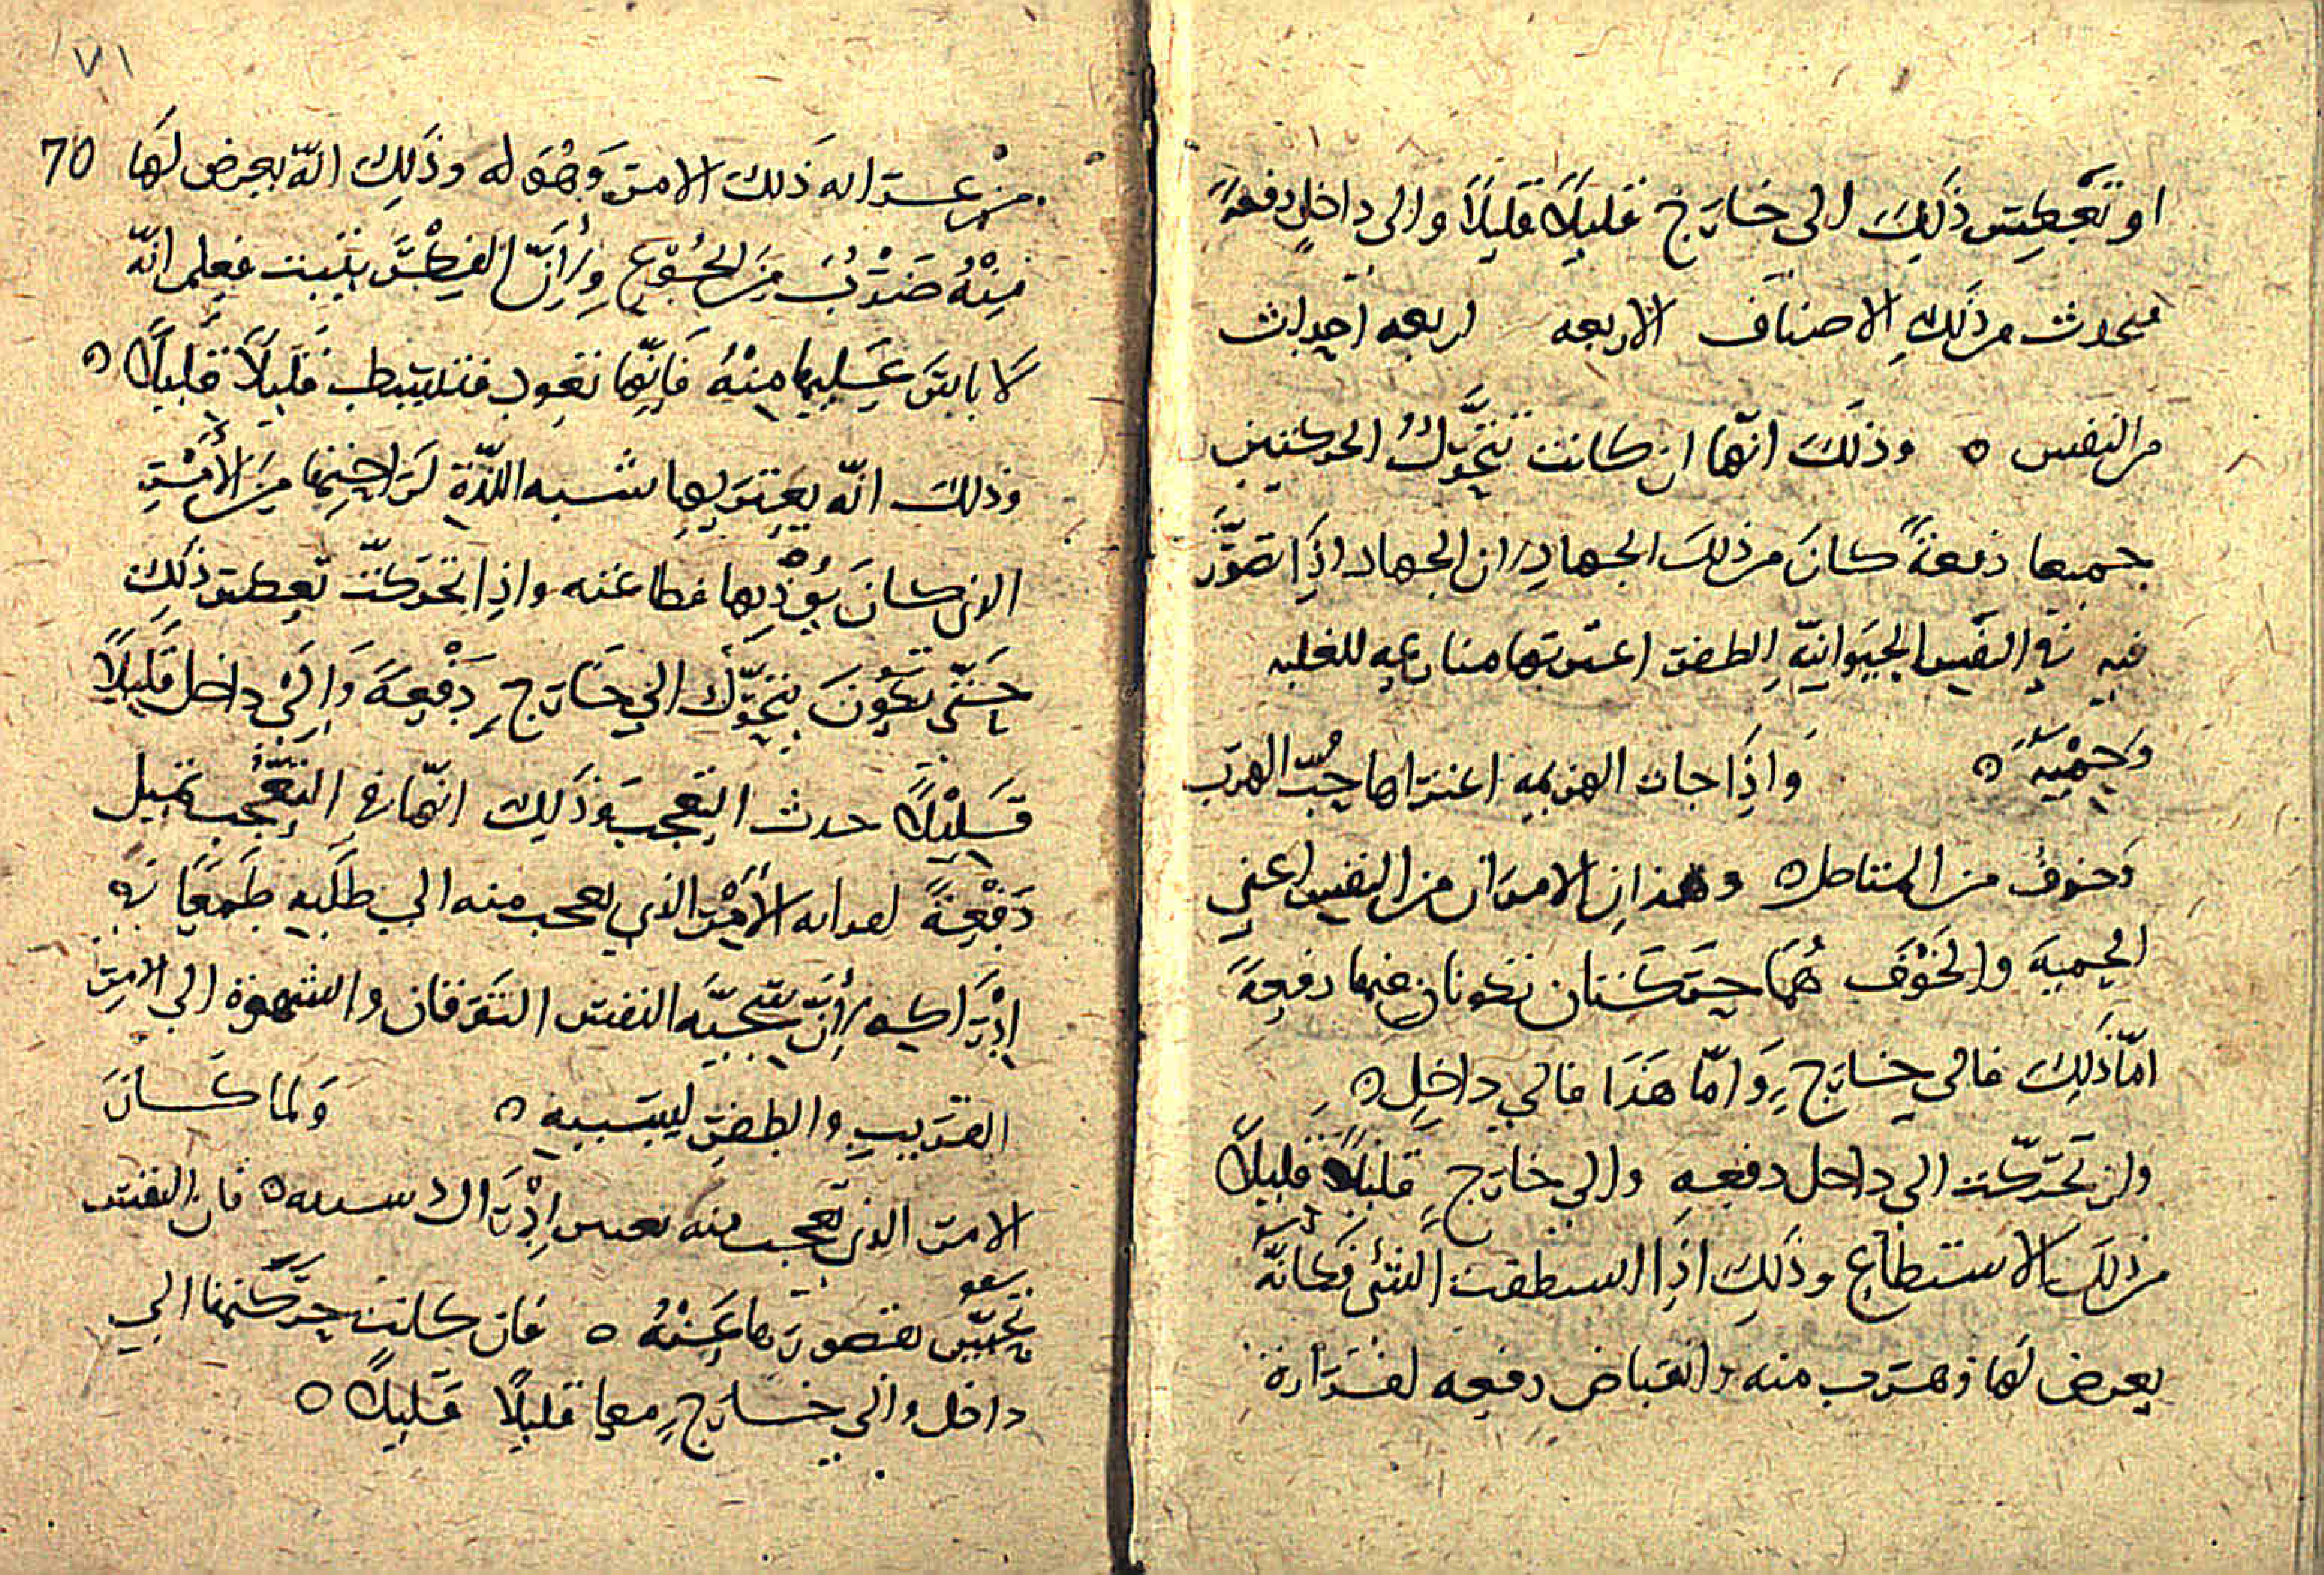 او تعكس ذَلِكَ الى خارج قليلًا قليلًا والى داخلٍ دفعةً
فيحدث من ذلك الاصناف الاربعه اربعه احداث
من النفس ه وذلك انّها ان كانت تتحرّك الحركتين
جميعا دفعةً كانَ من ذلك الجهاد لان الجهاد اذَا تصوّر
فيه في النفس الحيوانيّه الظفر اعترتها منازعه للغلبه
وَحِمْيَة ه وَاذَا جات الهزيمه اعتراها حُبّ الهرب
وَخوف من المناصل ه وهذان الامران من النفس اعني
الحمية والخَوْفَ هُمَا حركتان تكونان منها دفعة
امّا ذَلِكَ فالى خارج وَامّا هَذَا فالي داخلٍ ه
وان تحرّكت الى داخل دفعه والى خارج قليلًا قليلًا
من ذلك الاستفظاع وذلك اذَا استفظعت الشئ فكانّه
يعرض لَهَا هرب منه وانقباض دفعه لغزارة
٧١
70
من غير انه ذَلك الامر وَهُوَ له وذَلِكَ انّه يعرض لَهَا
مِنْهُ ضَرْبٌ مِنَ الجُوع وِلأَنَّ الفِكْر يثبت فيعلم انّه
لَا باس عَليها مِنْهُ فَانّها تعود فتنبسط قليلًا قليلًا ه
وَذلك انّه يعتريها شبه اللّذّة لرَاحتها مِنَ الأمْرِ
الذي كانَ يؤذيها فطا عنه واذا تحركّت تعكس ذلك
حَتّى تكونَ تتحرّك الي خارج دَفْعة وَالى داخل قليلًا
قَليْلًا حدث التعجب وَذَلِك انّها في التعَجُّب تميل
دَفْعةً الأمْر الذي تعجب منه الي طلَبه طَمَعًا في
إدْرَاكه لأنّ سَجيّه النفس العرفان والشهوة الى الامر
القريب والظفر لسببه ه وَلما كَانَ
الامر الذي تعجب منه إدْرَاك سببه ه فان النفس
تحسّ بقصورها عَنْهُ ه فان كانت حركتها الي
داخل والي خارج معا قليلًا قليلًا ه